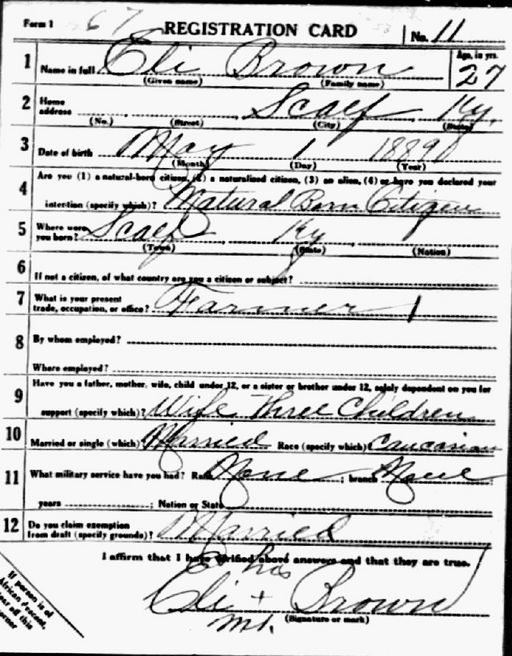 Form 1 67 REGISTRATION CARD No. 11
1 Name in full Eli Brown Age, in yrs. 27
(Given name) (Family name)
2 Home address Scalf, Ky.
(No.) (Street) (City) (State)
3 Date of birth May 1 1889
(Month) (Day) (Year)
4 Are you (1) a natural-born citizen, (2) a naturalized citizen, (3) an alien, (4) or have you declared your
intention (specify which)? Natural Born Citizen
5 Where were you born? Scalf Ky
(Town) (State) (Nation)
6 If not a citizen, of what country are you a citizen or subject?
7 What is your present trade, occupation, or office? Farmer
8 By whom employed?
Where employed?
9 Have you a father, mother, wife, child under 12, or a sister or brother under 12, solely dependent on you for
support (specify which)? Wife Three Children
10 Married or single (which)? Married Race (specify which)? Caucasian
11 What military service have you had? Rank None ; branch None
years ; Nation or State
12 Do you claim exemption from draft (specify grounds)? Married
I affirm that I have verified above answers and that they are true.
his
Eli + Brown
mk.
(Signature or mark)
If person is of
African descent,
corner